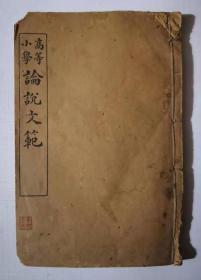 高等小學
論說文範